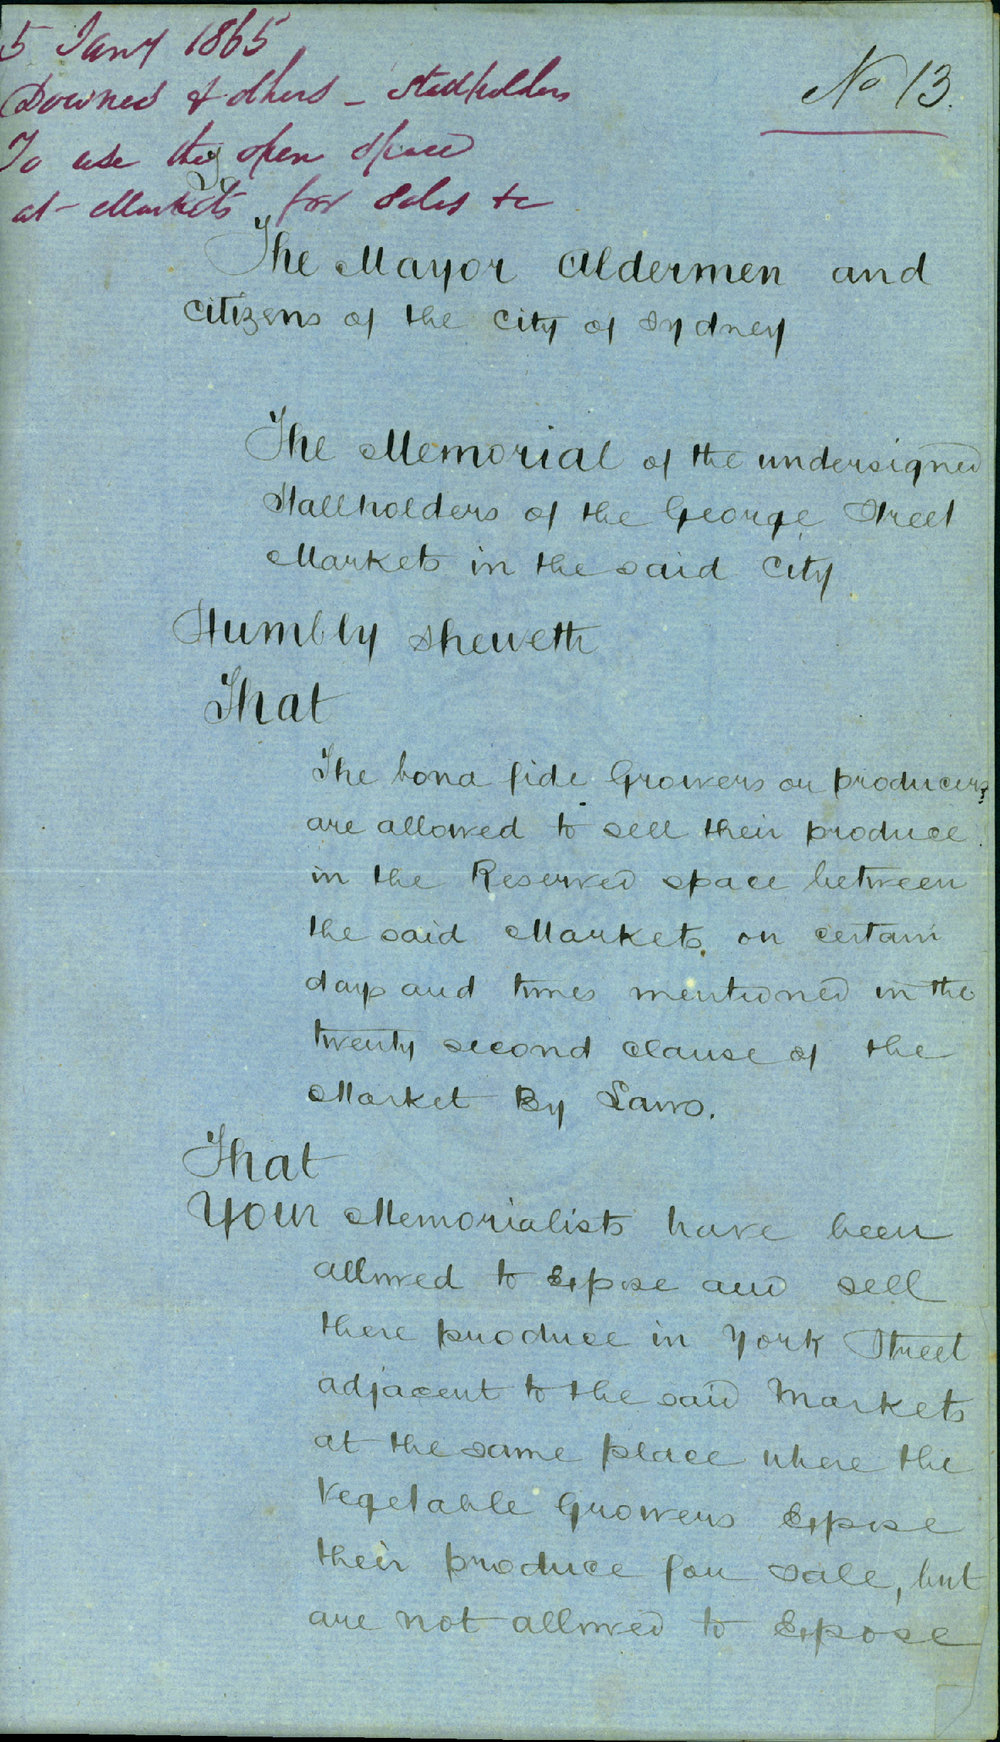 5 Jany 1865
No 13.
Downes & others - Stallholders
To use the open space
at Markets for Sales &c
To
The Mayor Aldermen and
Citizens of the City of Sydney
The Memorial of the undersigned
Stallholders of the George Street
Markets in the said City
Humbly Sheweth
That
The bona fide Growers or producers
are allowed to sell their produce
in the Reserved space between
the said Markets on certain
days and times mentioned in the
twenty second clause of the
Market By Laws.
That
Your Memorialists have been
allowed to Expose and sell
there produce in York Street
adjacent to the said Markets
at the same place where the
Vegetable Growers Expose
their produce for sale, but
are not allowed to Expose